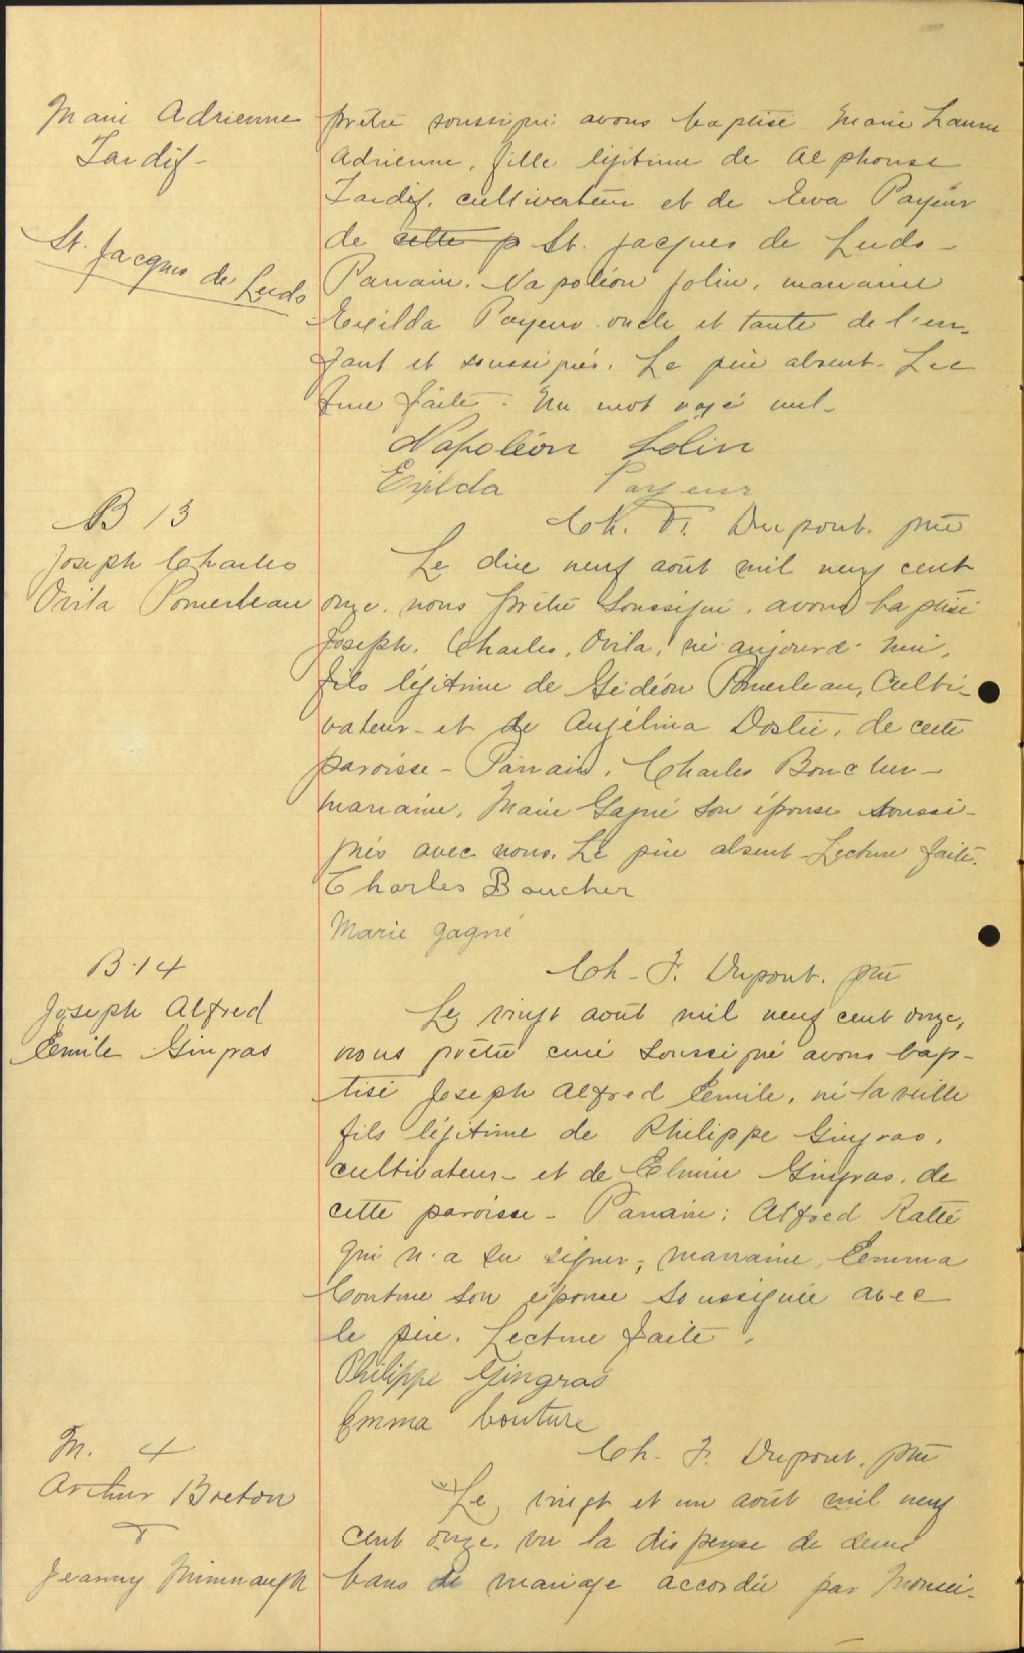 Marie Adrienne
Tardif-
St. Jacques de Leeds
prêtre soussigné avons baptisé Marie Laure
Adrienne, fille légitime de Alphonse
Tardif, cultivateur et de Eva Payeur
de cette p St. Jacques de Leeds -
Parrain, Napoléon Jolin, marraine
Exilda Payeur oncle et tante de l'en-
fant et soussignés. Le père absent. Lec
ture faite. Un mot rayé nul-
Napoléon Jolin
Exilda Payeur
Ch. F. Dupont. ptre
B 13
Joseph Charles
Ovila Pomerleau
Le dixe neuf août mil neuf cent
onze, nous prêtre soussigné, avons baptisé
Joseph, Charles, Ovila, né aujourd'hui,
fils légitime de Gédéon Pomerleau, Culti-
vateur - et de Angélina Dostie, de cette
paroisse - Parrain, Charles Boucher -
marraine, Marie Gagné son épouse soussi-
gnés avec nous. Le père absent - Lecture faite.
Charles Boucher
Marie gagné
Ch - F. Dupont. ptre
B.14
Joseph Alfred
Emile Gingras
Le vingt août mil neuf cent onze,
nous prêtre curé soussigné avons bap-
tisé Joseph Alfred Emile, né la veille
fils légitime de Philippe Gingras,
cultivateur - et de Elmire Gingras, de
cette paroisse - Parrain: Alfred Ratté
qui n'a su signer; marraine, Emma
Couture son épouse soussignée avec
le père. Lecture faite.
Philippe Gingras
Emma Couture
Ch. F. Dupont. ptre
M. 4
Arthur Breton
&
Jeanny Mimnaugh
Le vingt et un août mil neuf
cent onze, vu la dispense de deux
bans de mariage accordée par Monsei-